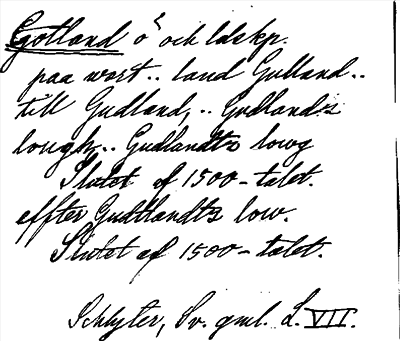 Gotland ö och ldskp.
paa wort.. land Gulland..
till Gudland, .. Gudlands
lough.. Gudlandtz lowg
Slutet af 1500-talet.
effter Gudtlandtz low.
Slutet af 1500-talet.
Schlyter, Sv. gml. L. VII.